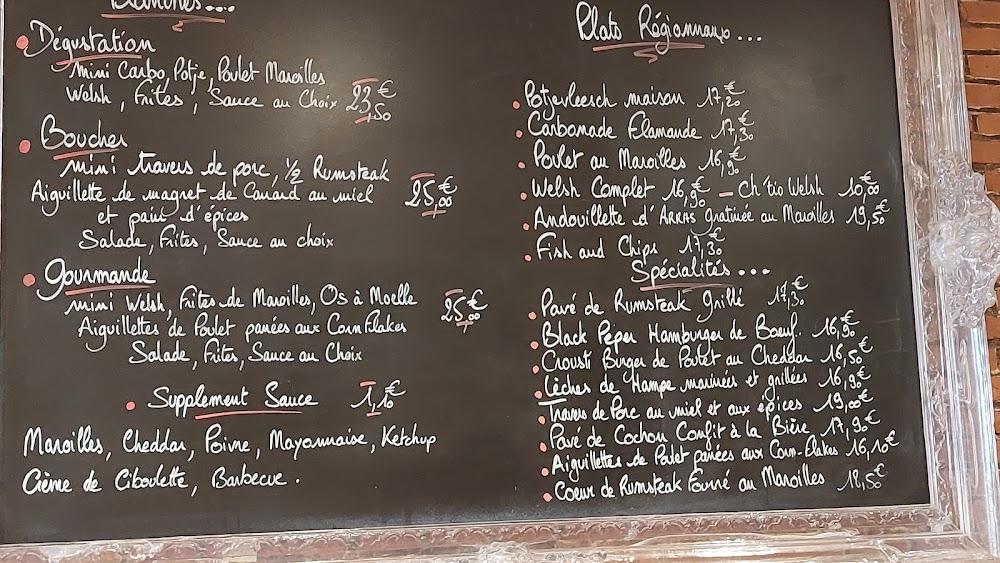 Dégustation
mini Carbo, Potje, Poulet Maroilles
Welsh, Frites, Sauce au Choix 23,50€
Boucher
mini travers de porc, 1/2 Rumsteak
Aiguillette de magret de Canard au miel 25,00€
et pain d'épices
Salade, Frites, Sauce au choix
Gourmande
mini Welsh, Frites de Maroilles, Os à Moelle 25,00€
Aiguillettes de Poulet panées aux Corn Flakes
Salade, Frites, Sauce au Choix
Supplement Sauce 1,10€
Maroilles, Cheddar, Poivre, Mayonnaise, Ketchup
Crème de Ciboulette, Barbecue.
Plats Régionnaux...
Potjevleesch maison 17,20€
Carbonnade Flamande 17,30€
Poulet au Maroilles 16,90€
Welsh Complet 16,90€ - Ch'tio Welsh 10,00€
Andouillette d'ARRAS gratinée au Maroilles 19,50€
Fish and Chips 17,30€
Spécialités...
Pavé de Rumsteak grillé 17,30€
Black Peper Hamburger de Bœuf. 16,90€
Crousti Burger de Poulet au Cheddar 16,50€
Lèches de Hampe marinées et grillées 16,90€
Travers de Porc au miel et aux épices 19,00€
Pavé de Cochon Confit à la Bière 17,90€
Aiguillettes de Poulet panées aux Corn-Flakes 16,10€
Coeur de Rumsteak Fourré au Maroilles 18,50€